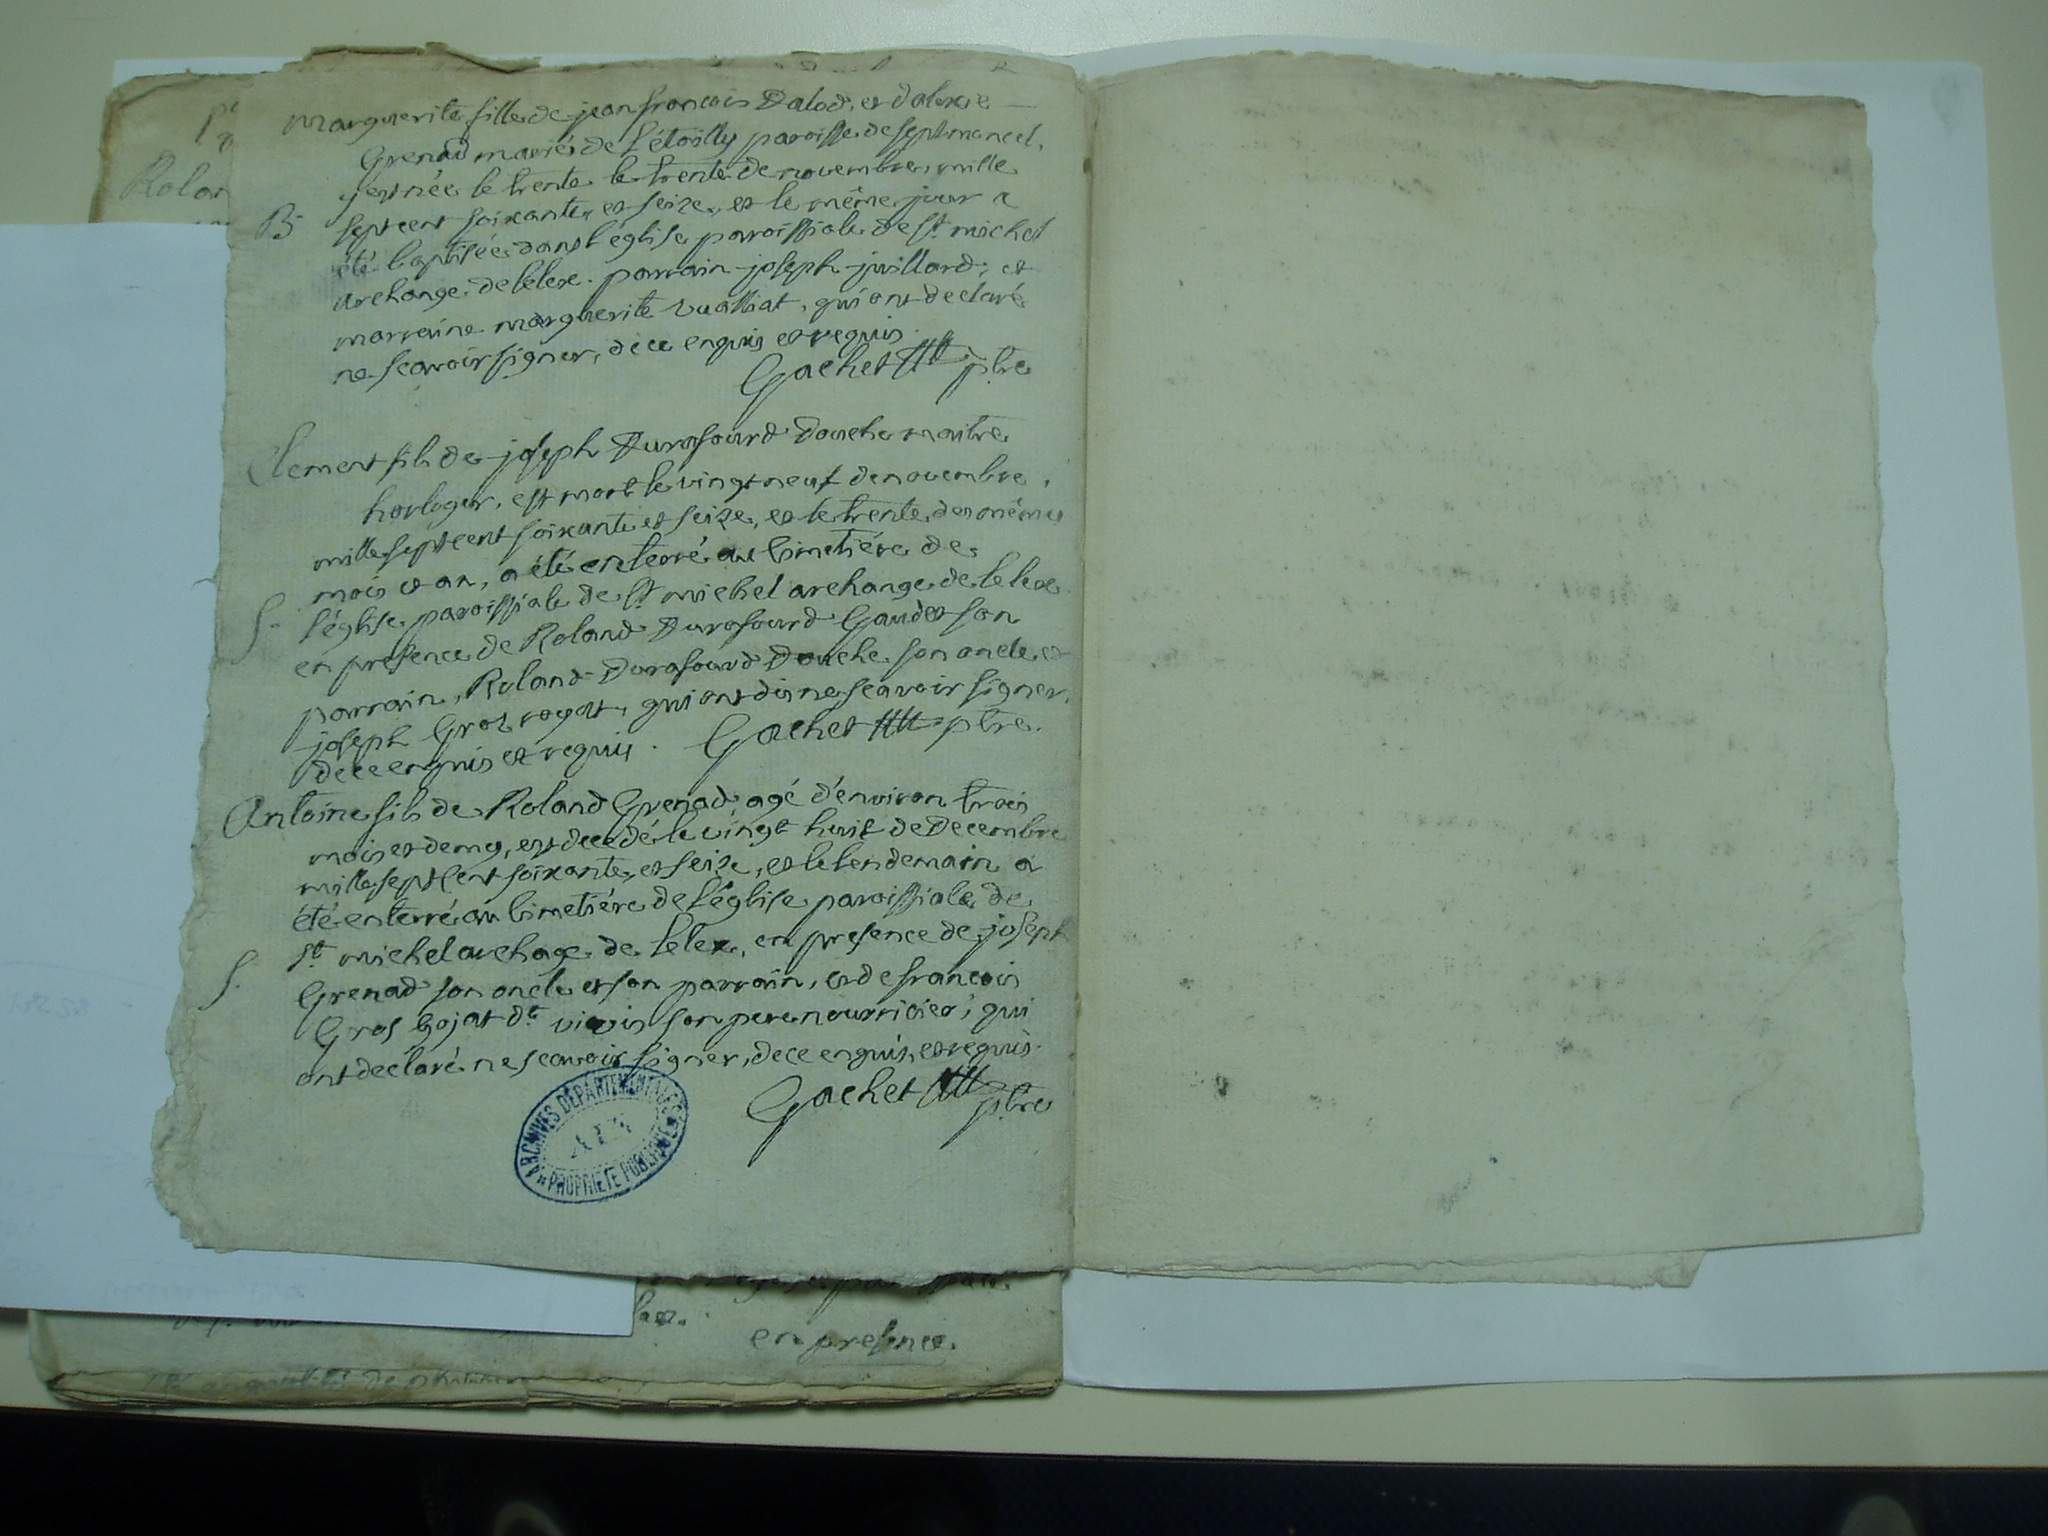 Marguerite fille de jean francois Dalod, et d'alexie
Grenad mariés de l'étoilly paroisse de septmoncel,
est née le trente le trente de novembre mille
B. septcent soixante et seize, et le même jour a
été baptisée dans l'église paroissiale de st michel
archange de lelex. parrain joseph juillard, et
marraine marguerite Vualliat, qui ont declaré
ne scavoir signer, de ce enquis et requis.
Gachet ptre
Clement fils de joseph Durafourd Douche maitre
horloger, est mort le vingt neuf de novembre,
mille septcent soixante et seize, et le trente des même
mois et an, a été enterré au cimetiére de
S. l'église paroissiale de st michel archange de lelex
en presence de Roland Durafourd Gaudet son
parrain, Roland Durafourd Douche son oncle et
joseph Gros, qui ont dis ne scavoir signer,
de ce enquis et requis. Gachet ptre.
Antoine fils de Roland Grenad, agé d'environ trois
mois et demy, est decedé le vingt huit de Decembre
mille septcent soixante, et seize, et le lendemain a
été enterré au cimetiére de l'église paroissiale de
S. st michel archage de lelex, en presence de joseph
Grenad son oncle et son parrain, et de francois
Gros Gojat dt son pere nourricier, qui
ont declaré ne scavoir signer, de ce enquis, et requis.
Gachet ptre
ARCHIVES DÉPARTEMENTALES
AIN
PROPRIÉTÉ PUBLIQUE
Rolan
en presence.